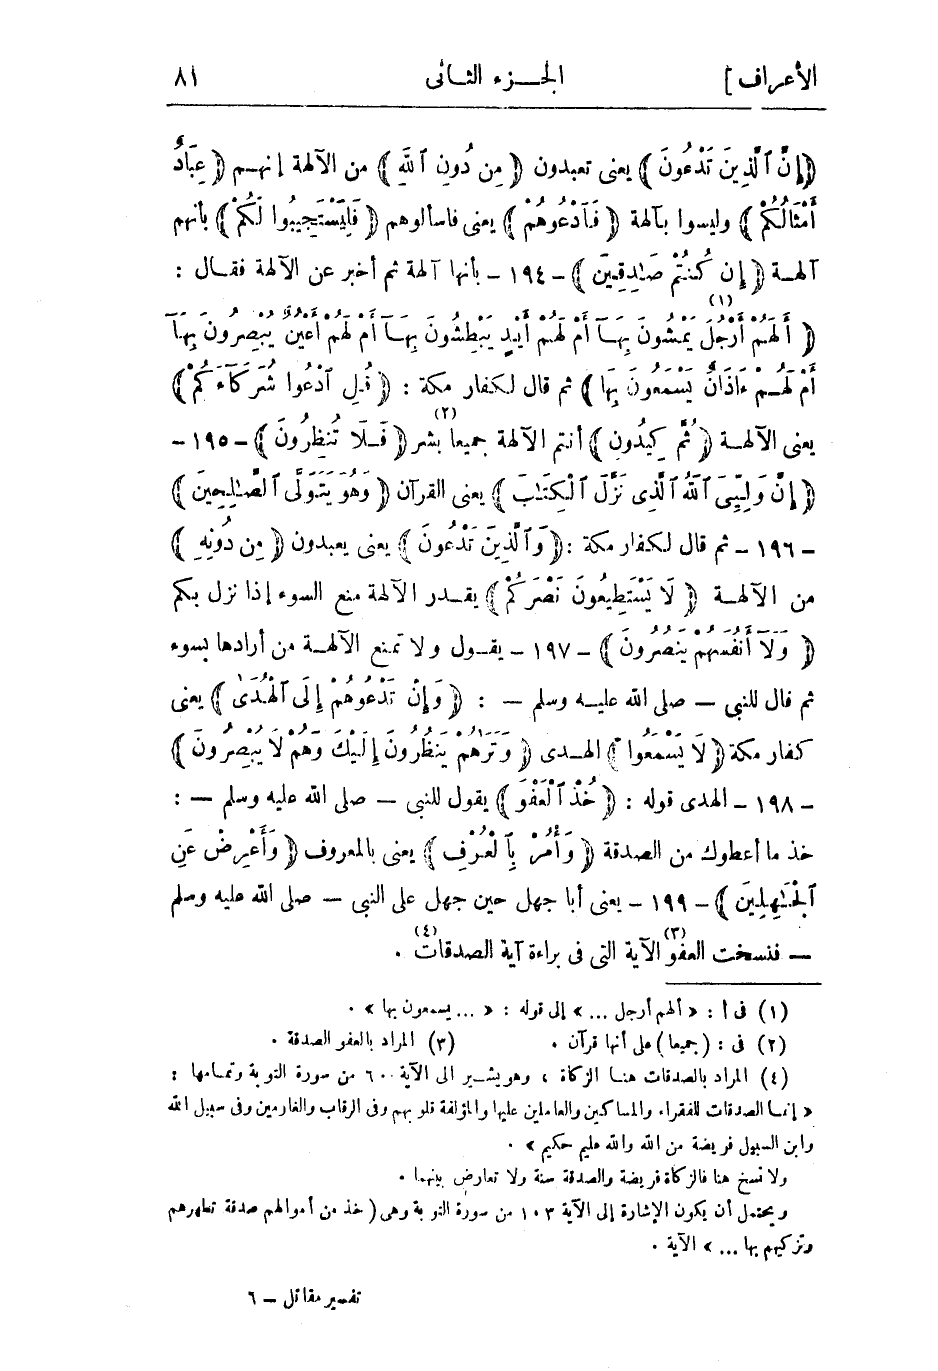 الأعراف ] الجزء الثانى ٨١
﴿إِنَّ ٱلَّذِينَ تَدْعُونَ﴾ يعنى تعبدون ﴿مِن دُونِ ٱللَّهِ﴾ من الآلهة إنهم ﴿عِبَادٌ
أَمْثَالُكُمْ﴾ وليسوا بآلهة ﴿فَٱدْعُوهُمْ﴾ يعنى فاسألوهم ﴿فَلْيَسْتَجِيبُوا لَكُمْ﴾ بأنهم
آلهة ﴿إِن كُنتُمْ صَٰدِقِينَ﴾ - ١٩٤ - بأنها آلهة ثم أخبر عن الآلهة فقال :
﴿أَلَهُمْ أَرْجُلٌ يَمْشُونَ بِهَآ (١) أَمْ لَهُمْ أَيْدٍ يَبْطِشُونَ بِهَآ أَمْ لَهُمْ أَعْيُنٌ يُبْصِرُونَ بِهَآ
أَمْ لَهُمْ ءَاذَانٌ يَسْمَعُونَ بِهَا﴾ ثم قال لكفار مكة : ﴿قُلِ ٱدْعُوا شُرَكَآءَكُمْ﴾
يعنى الآلهة ﴿ثُمَّ كِيدُونِ﴾ أنتم الآلهة جميعا (٢) بشر ﴿فَلَا تُنظِرُونَ﴾ - ١٩٥ -
﴿إِنَّ وَلِيِّىَ ٱللَّهُ ٱلَّذِى نَزَّلَ ٱلْكِتَٰبَ﴾ يعنى القرآن ﴿وَهُوَ يَتَوَلَّى ٱلصَّٰلِحِينَ﴾
- ١٩٦ - ثم قال لكفار مكة : ﴿وَٱلَّذِينَ تَدْعُونَ﴾ يعنى يعبدون ﴿مِن دُونِهِ﴾
من الآلهة ﴿لَا يَسْتَطِيعُونَ نَصْرَكُمْ﴾ يقدر الآلهة منع السوء إذا نزل بكم
﴿وَلَآ أَنفُسَهُمْ يَنصُرُونَ﴾ - ١٩٧ - يقول ولا تمنع الآلهة من أرادها بسوء
ثم قال للنبى - صلى الله عليه وسلم - : ﴿وَإِنْ تَدْعُوهُمْ إِلَى ٱلْهُدَىٰ﴾ يعنى
كفار مكة ﴿لَا يَسْمَعُوا﴾ الهدى ﴿وَتَرَىٰهُمْ يَنظُرُونَ إِلَيْكَ وَهُمْ لَا يُبْصِرُونَ﴾
- ١٩٨ - الهدى قوله : ﴿خُذِ ٱلْعَفْوَ﴾ يقول للنبى - صلى الله عليه وسلم - :
خذ ما أعطوك من الصدقة ﴿وَأْمُرْ بِٱلْعُرْفِ﴾ يعنى بالمعروف ﴿وَأَعْرِضْ عَنِ
ٱلْجَٰهِلِينَ﴾ - ١٩٩ - يعنى أبا جهل حين جهل على النبى - صلى الله عليه وسلم
- فنسخت العفو (٣) الآية التى فى براءة آية الصدقات (٤) .
(١) فى أ : « ألهم أرجل ... » إلى قوله : « ... يسمعون بها » .
(٢) فى : (جميعا) على أنها قرآن . (٣) المراد بالعفو الصدقة .
(٤) المراد بالصدقات هنا الزكاة ، وهو يشير الى الآية ٦٠ من سورة التوبة وتمامها :
« إنما الصدقات للفقراء والمساكين والعاملين عليها والمؤلفة قلوبهم وفى الرقاب والغارمين وفى سبيل الله
وابن السبيل فريضة من الله والله عليم حكيم » .
ولا نسخ هنا فالزكاة فريضة والصدقة سنة ولا تعارض بينهما .
ويحتمل أن يكون الإشارة إلى الآية ١٠٣ من سورة التوبة وهى (خذ من أموالهم صدقة تطهرهم
وتزكيهم بها ... » الآية .
تفسير مقاتل - ٦